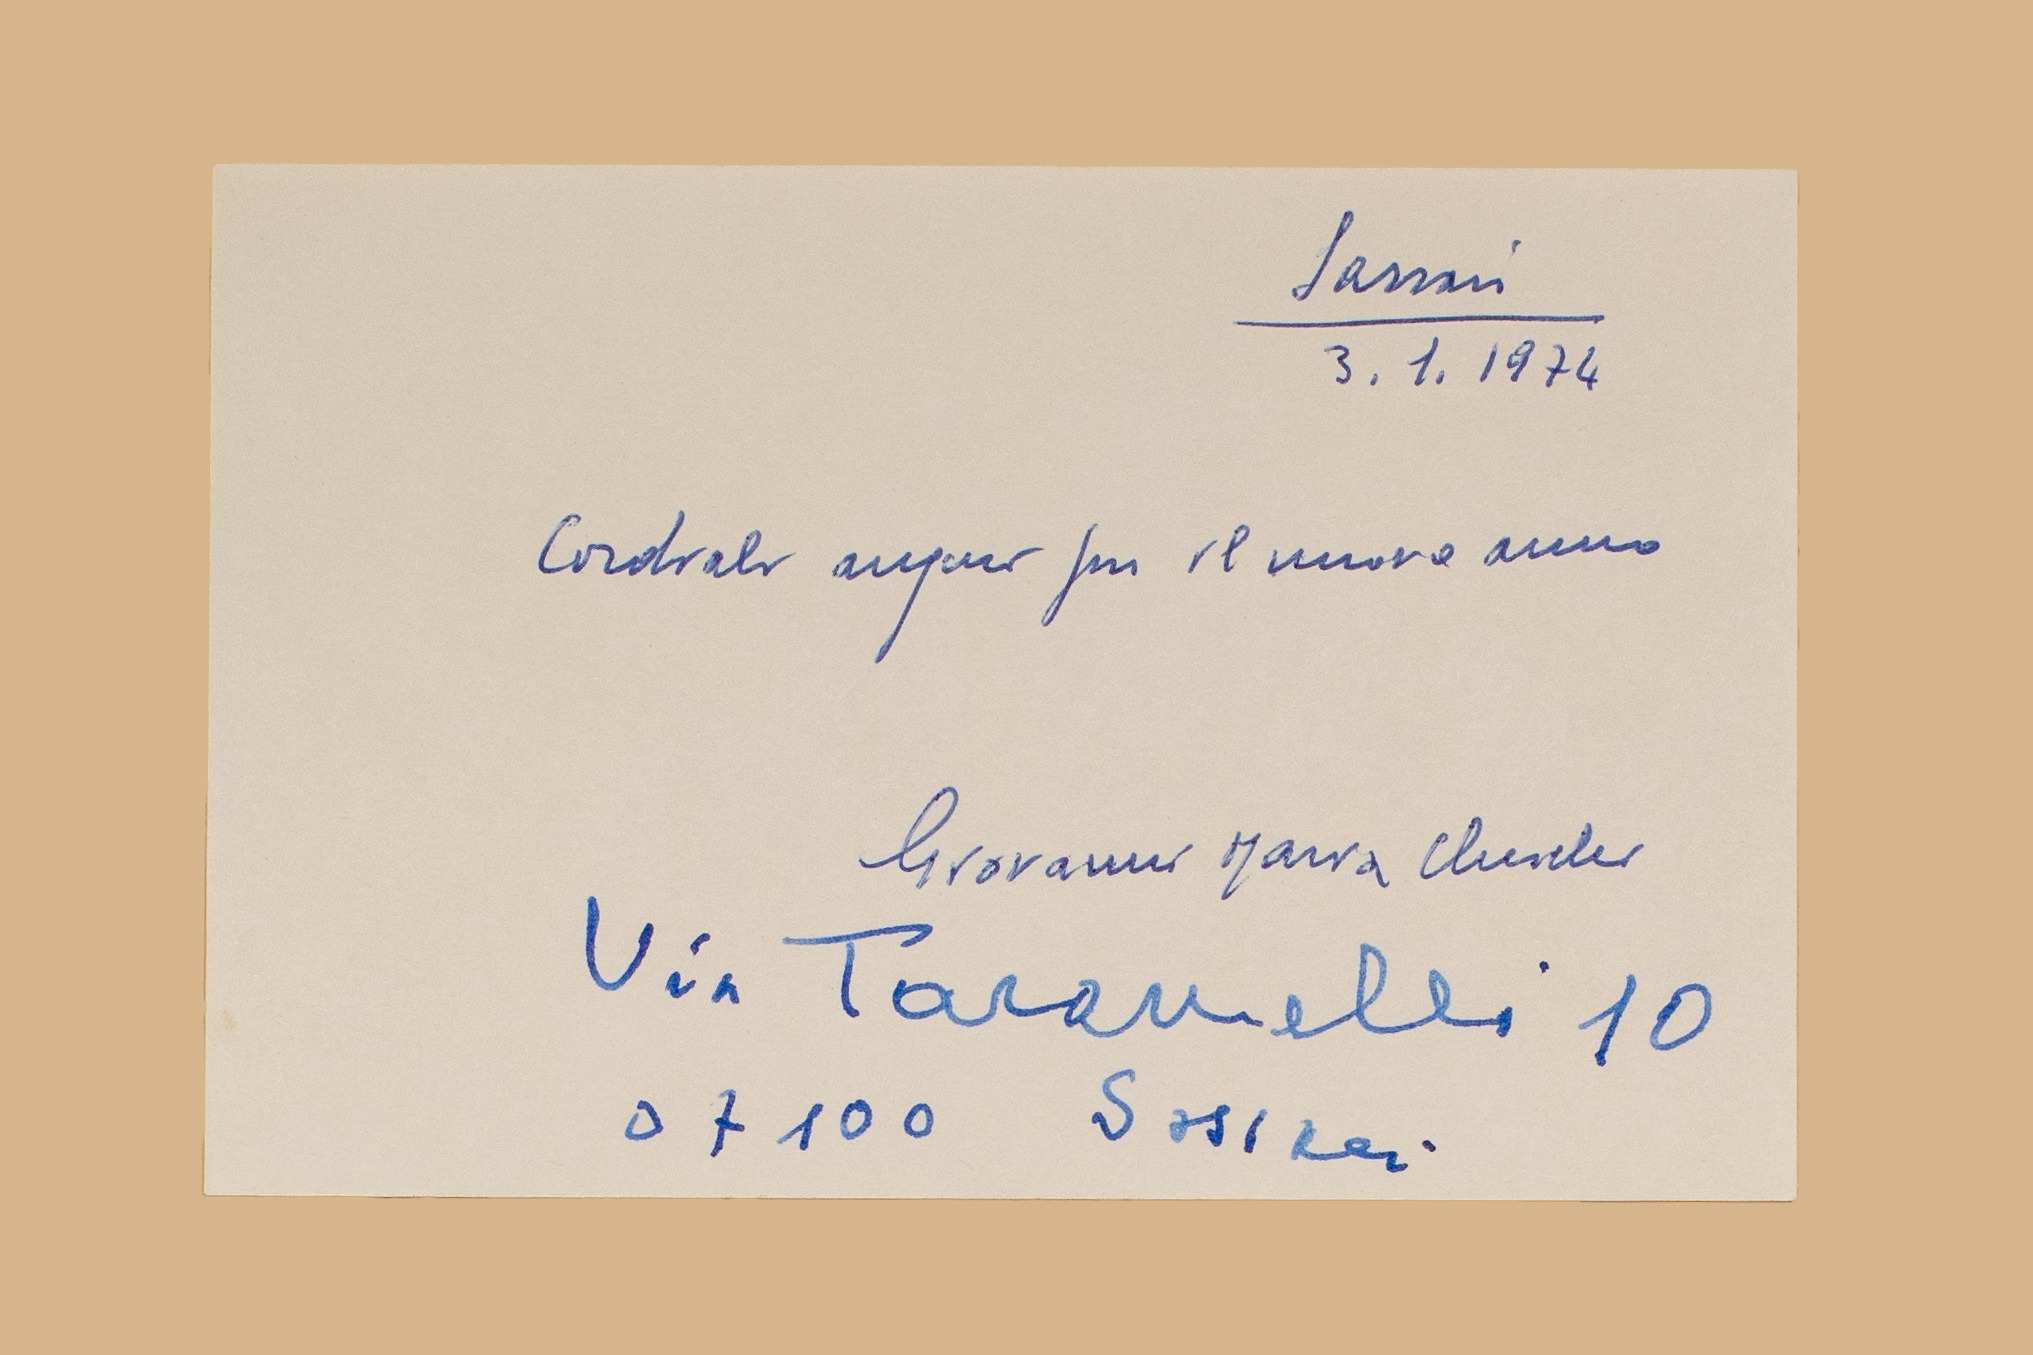 Sassari
3.1.1974
Cordiali auguri per il nuovo anno
Giovanni Maria Cherchi
Via Taramelli 10
07100 Sassari